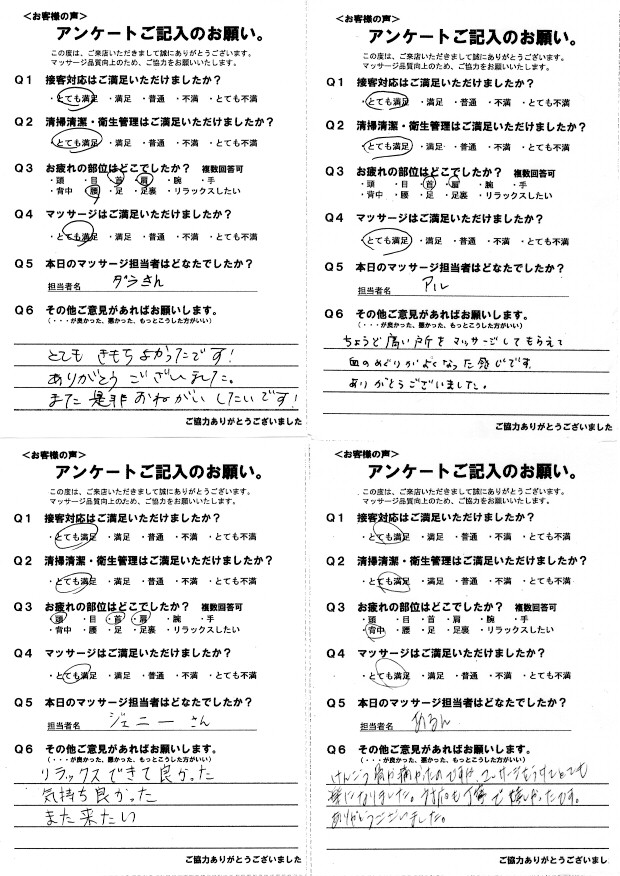 ＜お客様の声＞
アンケートご記入のお願い。
この度は、ご来店いただきまして誠にありがとうございます。
マッサージ品質向上のため、ご協力をお願いいたします。
Q1 接客対応はご満足いただけましたか？
・とても満足 ・満足 ・普通 ・不満 ・とても不満
Q2 清掃清潔・衛生管理はご満足いただけましたか？
・とても満足 ・満足 ・普通 ・不満 ・とても不満
Q3 お疲れの部位はどこでしたか？ 複数回答可
・頭 ・目 ・首 ・肩 ・腕 ・手
・背中 ・腰 ・足 ・足裏 ・リラックスしたい
Q4 マッサージはご満足いただけましたか？
・とても満足 ・満足 ・普通 ・不満 ・とても不満
Q5 本日のマッサージ担当者はどなたでしたか？
担当者名 ダラさん
Q6 その他ご意見があればお願いします。
（・・・が良かった、悪かった、もっとこうした方がいい）
とても きもちよかったです！
ありがとう ございました。
また 是非 おねがい したいです！
ご協力ありがとうございました
＜お客様の声＞
アンケートご記入のお願い。
この度は、ご来店いただきまして誠にありがとうございます。
マッサージ品質向上のため、ご協力をお願いいたします。
Q1 接客対応はご満足いただけましたか？
・とても満足 ・満足 ・普通 ・不満 ・とても不満
Q2 清掃清潔・衛生管理はご満足いただけましたか？
・とても満足 ・満足 ・普通 ・不満 ・とても不満
Q3 お疲れの部位はどこでしたか？ 複数回答可
・頭 ・目 ・首 ・肩 ・腕 ・手
・背中 ・腰 ・足 ・足裏 ・リラックスしたい
Q4 マッサージはご満足いただけましたか？
・とても満足 ・満足 ・普通 ・不満 ・とても不満
Q5 本日のマッサージ担当者はどなたでしたか？
担当者名 アル
Q6 その他ご意見があればお願いします。
（・・・が良かった、悪かった、もっとこうした方がいい）
ちょうど痛い所を マッサージしてもらえて
血のめぐりがよくなった感じです。
ありがとうございました。
ご協力ありがとうございました
＜お客様の声＞
アンケートご記入のお願い。
この度は、ご来店いただきまして誠にありがとうございます。
マッサージ品質向上のため、ご協力をお願いいたします。
Q1 接客対応はご満足いただけましたか？
・とても満足 ・満足 ・普通 ・不満 ・とても不満
Q2 清掃清潔・衛生管理はご満足いただけましたか？
・とても満足 ・満足 ・普通 ・不満 ・とても不満
Q3 お疲れの部位はどこでしたか？ 複数回答可
・頭 ・目 ・首 ・肩 ・腕 ・手
・背中 ・腰 ・足 ・足裏 ・リラックスしたい
Q4 マッサージはご満足いただけましたか？
・とても満足 ・満足 ・普通 ・不満 ・とても不満
Q5 本日のマッサージ担当者はどなたでしたか？
担当者名 ジェニー さん
Q6 その他ご意見があればお願いします。
（・・・が良かった、悪かった、もっとこうした方がいい）
リラックスできて良かった
気持ち良かった
また来たい
ご協力ありがとうございました
＜お客様の声＞
アンケートご記入のお願い。
この度は、ご来店いただきまして誠にありがとうございます。
マッサージ品質向上のため、ご協力をお願いいたします。
Q1 接客対応はご満足いただけましたか？
・とても満足 ・満足 ・普通 ・不満 ・とても不満
Q2 清掃清潔・衛生管理はご満足いただけましたか？
・とても満足 ・満足 ・普通 ・不満 ・とても不満
Q3 お疲れの部位はどこでしたか？ 複数回答可
・頭 ・目 ・首 ・肩 ・腕 ・手
・背中 ・腰 ・足 ・足裏 ・リラックスしたい
Q4 マッサージはご満足いただけましたか？
・とても満足 ・満足 ・普通 ・不満 ・とても不満
Q5 本日のマッサージ担当者はどなたでしたか？
担当者名
Q6 その他ご意見があればお願いします。
（・・・が良かった、悪かった、もっとこうした方がいい）
けんこう 痛かったのですが、マッサージ とても
楽になりました。 丁寧で嬉しかったです。
ありがとうございました。
ご協力ありがとうございまし